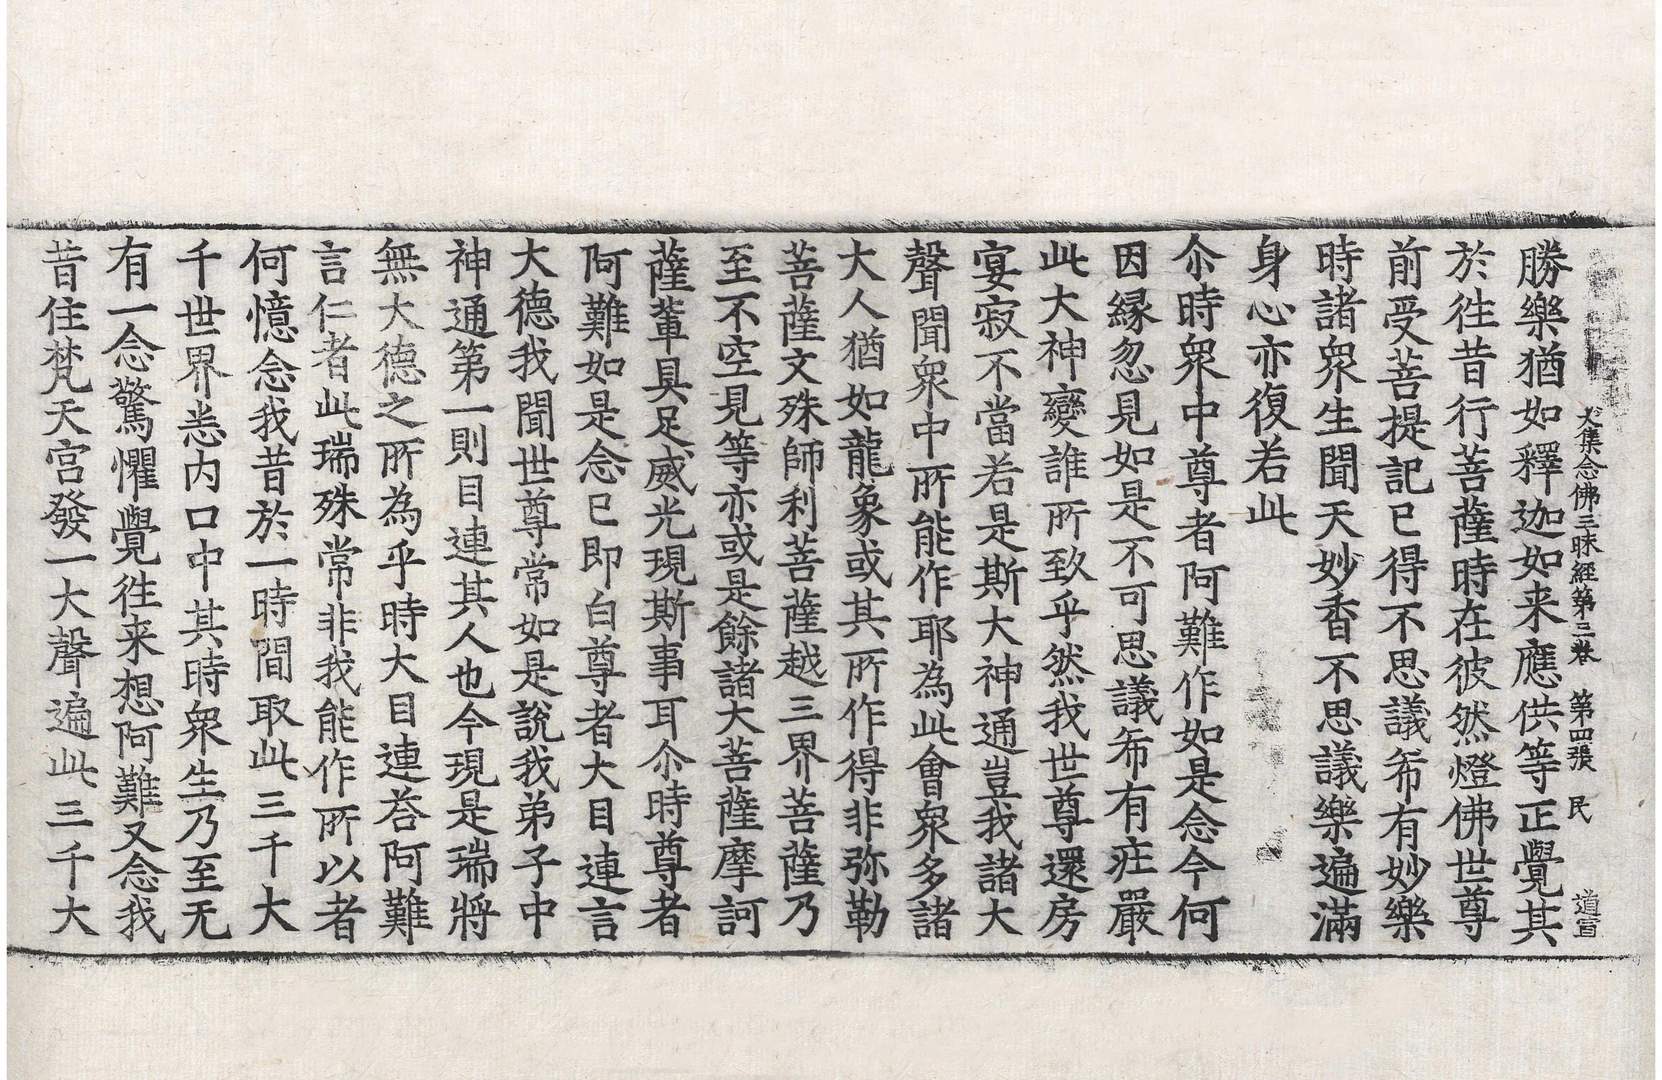 大集念佛三昧經第三卷 第四張 民 道冝
勝樂猶如釋迦如来應供等正覺其
於往昔行菩薩時在彼然燈佛世尊
前受菩提記已得不思議希有妙樂
時諸衆生聞天妙香不思議樂遍滿
身心亦復若此
尒時衆中尊者阿難作如是念今何
因緣忽見如是不可思議希有庄嚴
此大神變誰所致乎然我世尊還房
宴寂不當若是斯大神通豈我諸大
聲聞衆中所能作耶為此會衆多諸
大人猶如龍象或其所作得非弥勒
菩薩文殊師利菩薩越三界菩薩乃
至不空見等亦或是餘諸大菩薩摩訶
薩輩具足威光現斯事耳尒時尊者
阿難如是念已即白尊者大目連言
大德我聞世尊常如是說我弟子中
神通第一則目連其人也今現是瑞將
無大德之所為乎時大目連荅阿難
言仁者此瑞殊常非我能作所以者
何憶念我昔於一時間取此三千大
千世界悉内口中其時衆生乃至无
有一念驚懼覺往来想阿難又念我
昔住梵天宫發一大聲遍此三千大